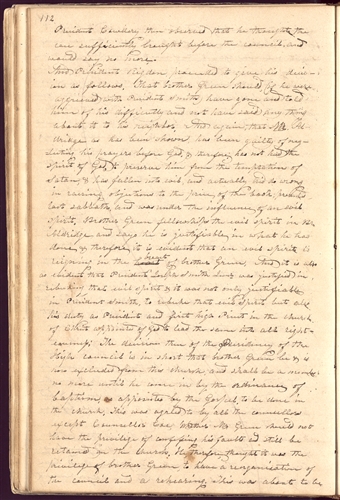 112
President Cowdery then observed that he thought the
case sufficiently brought before the council and
would say no more.
President Rigdon proceeded to give his decis-
ion as follows. That brother Green should, if he were
aggrieved with President Smith, have gone and told
him of his difficulty and not have said any thing
about it to his neighbor. And again, that Mr Al-
dridge as has been shown, has been guilty of neg-
lecting his prayers before God, & therefore has not had the
Spirit of God, to preserve him from the temptations of
Satan, & has fallen into and actually did do wrong
in raising objections to the price of this book, presented
last sabbath, and was under the influence of an evil
spirit, Brother Green fellowships the evil spirit in Mr
Aldridge and says he is justifiable in what he has
done, & therefore, it is evident that an evil spirit is
reigning in the heart of brother Green. And it is also
evident that President Joseph Smith Junr was justified in
rebuking that evil spirit & it was not only justifiable
in President Smith, to rebuke that evil spirit but also
his duty as President and first high Priest in the church
of Christ appointed of God to lead the same into all right-
eousness. The decision then of the Presidency of the
High council is in short that brother Green be & is
excluded from this church and shall be a member
no more until he come in by the ordinance of
Baptism as appointed by the Gospel, to be done in
the church, This was agreed to by all the counsellors
except Counsellor Coe, whether Mr Green should not
have the privilege of confessing his faults and still be
retained in the Church. He therefore thought it was the
privilege of brother Green, to have a reorganization of
the council and a rehearing. This was about to be